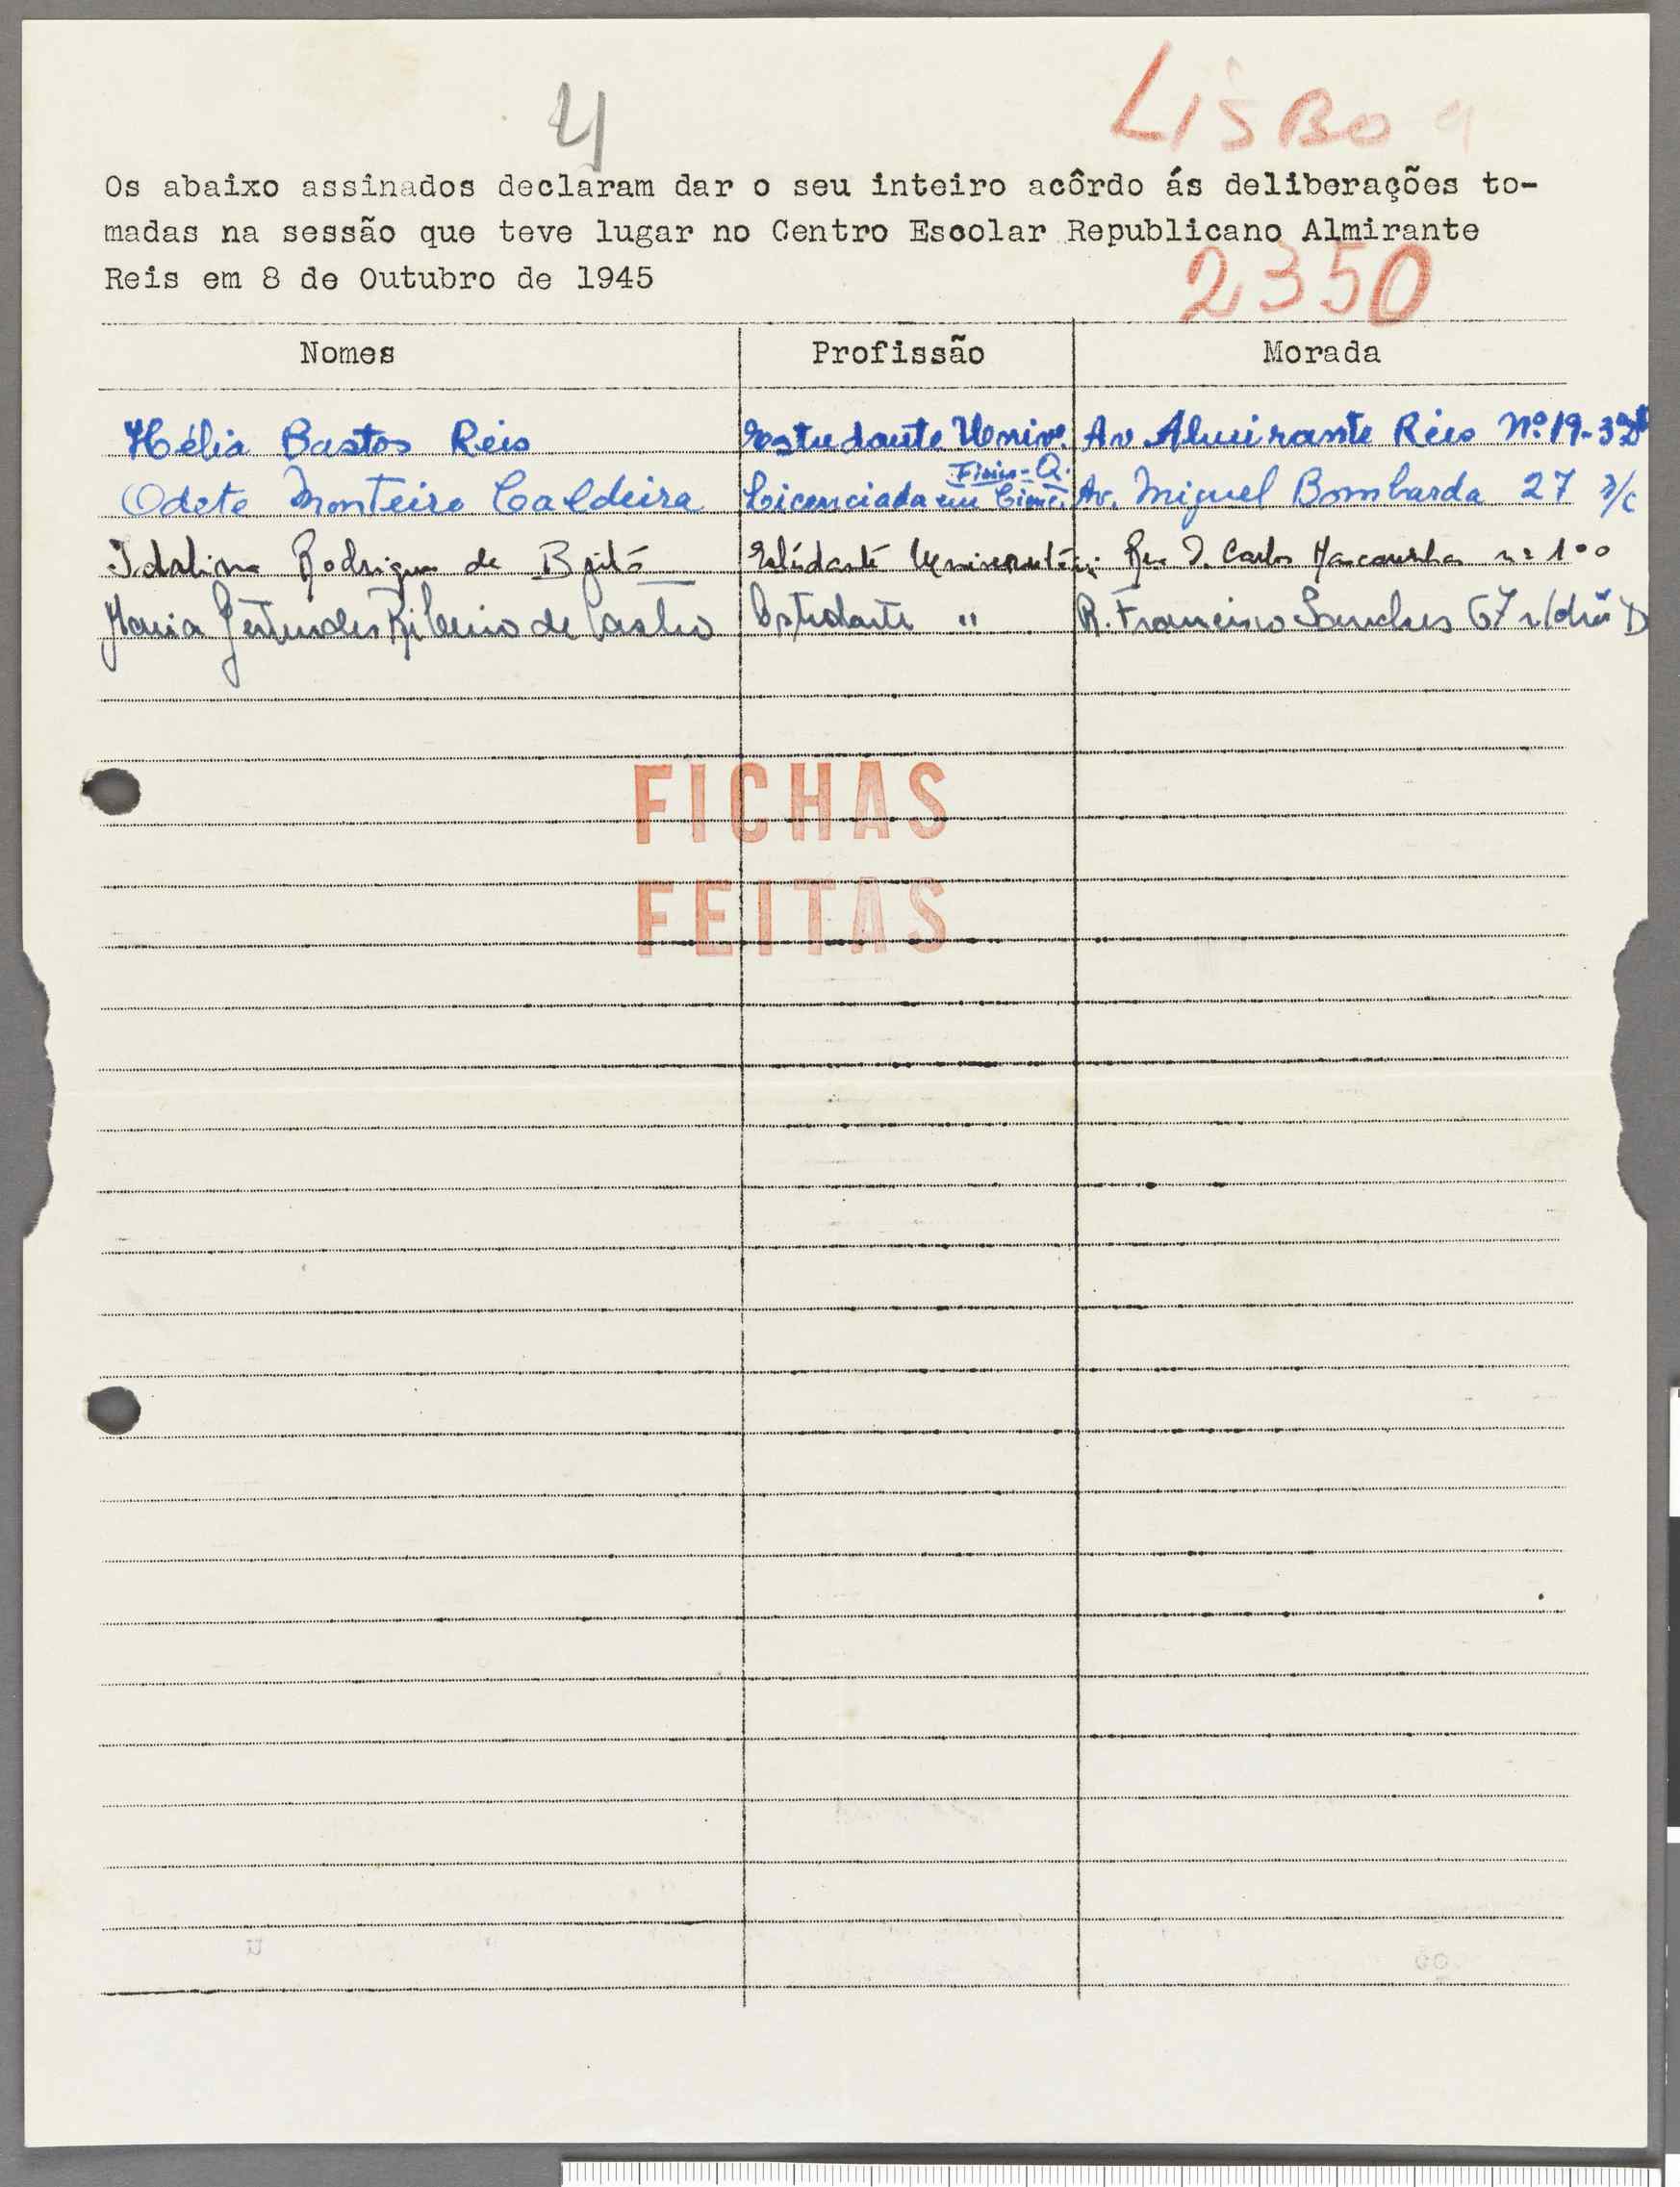 4
LISBOa
Os abaixo assinados declaram dar o seu inteiro acôrdo ás deliberações to-
madas na sessão que teve lugar no Centro Escolar Republicano Almirante
Reis em 8 de Outubro de 1945
2350
Nomes Profissão Morada
Hélia Bastos Reis Estudante Univ. Av Almirante Reis Nº 19-3º Dt
Odete Monteiro Caldeira Licenciada em Cienc. Fisico-Q. Av. Miguel Bombarda 27 r/c
Idalina Rodrigues de Brito Estudante Rua D. Carlos Mascarenhas nº
Maria Gertrudes Ribeiro de Castro Estudante " R. Francisco Sanches 67 r/chão D
FICHAS
FEITAS